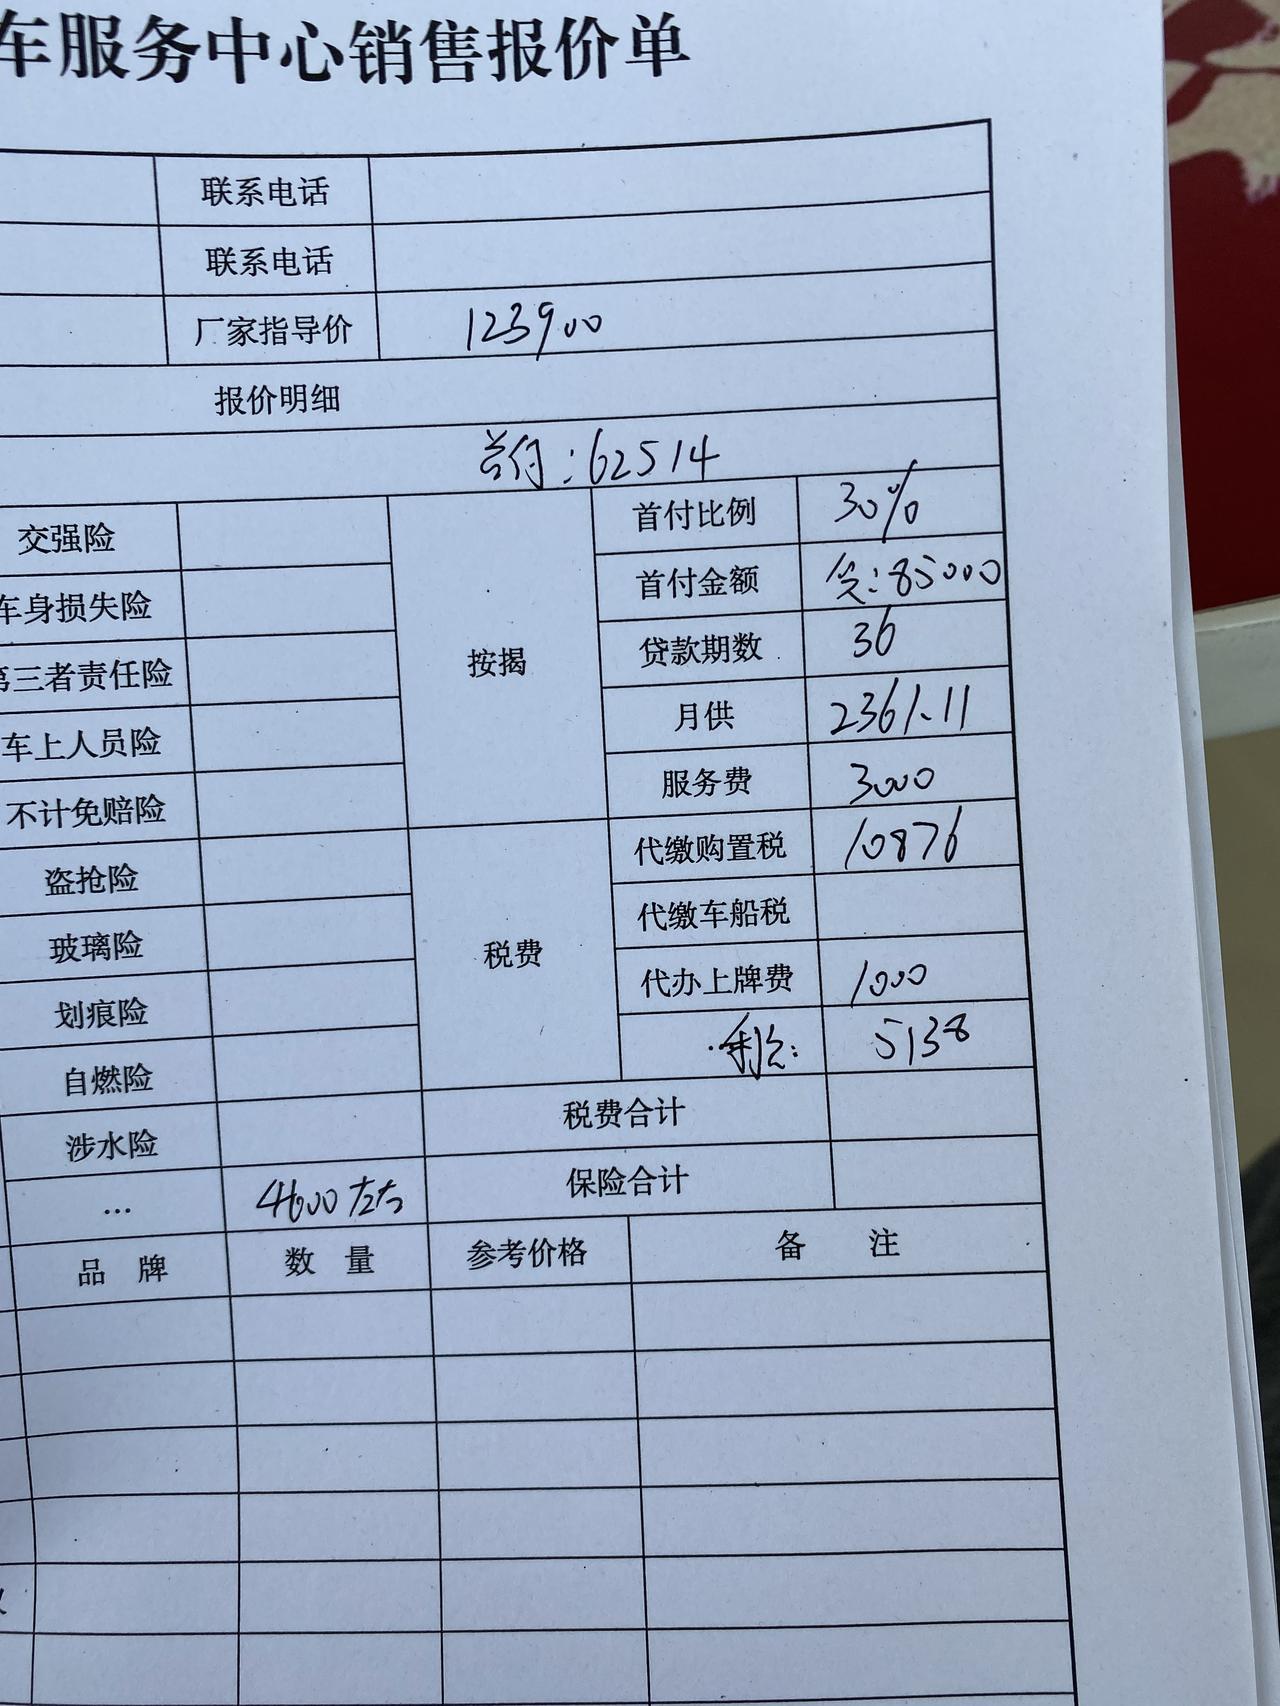 车服务中心销售报价单
联系电话
联系电话
厂家指导价 123900
报价明细
首付:62514
交强险 按揭 首付比例 30%
车身损失险 首付金额 贷:85000
第三者责任险 贷款期数 36
车上人员险 月供 2361.11
不计免赔险 服务费 3000
盗抢险 税费 代缴购置税 10876
玻璃险 代缴车船税
划痕险 代办上牌费 1000
自燃险 利息: 5138
涉水险 税费合计
... 4600左右 保险合计
品 牌 数 量 参考价格 备 注